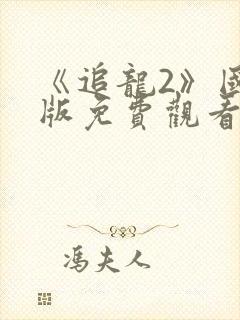 《追龍2》國
版免費觀看
馮夫人